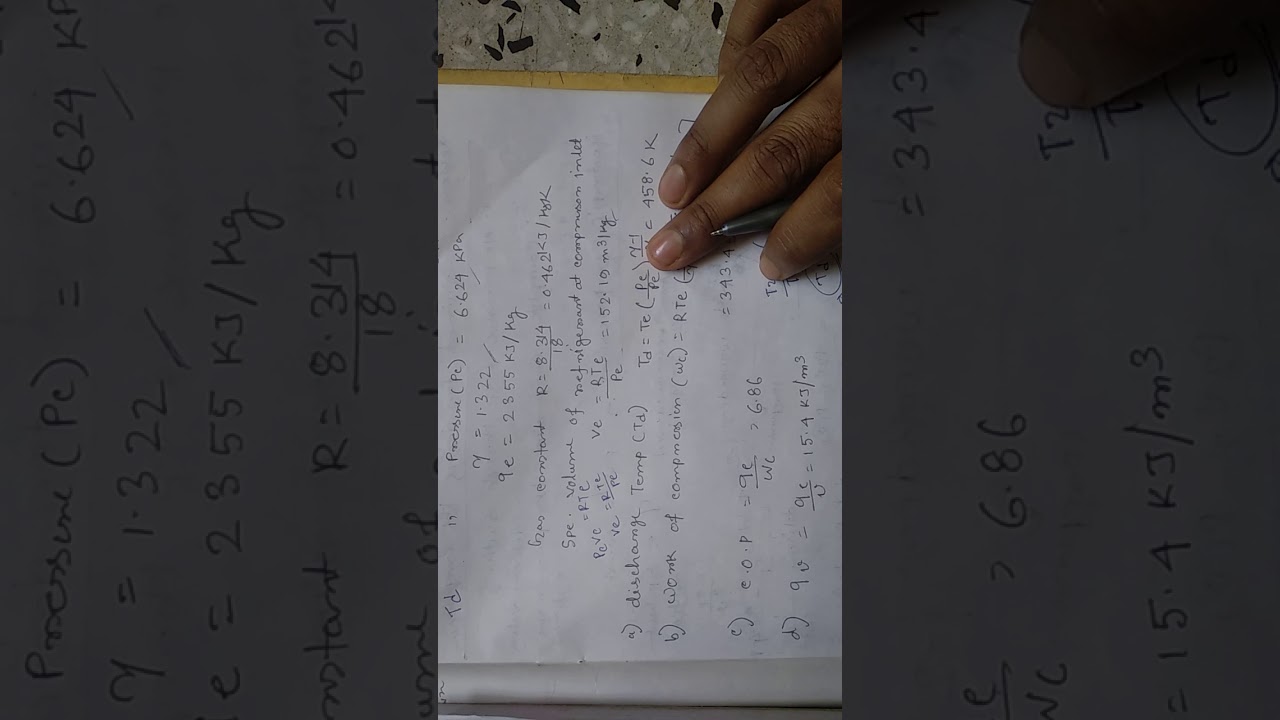 Td is Pressure (Pc) = 6.624 KPa
γ = 1.322
qe = 2355 KJ/Kg
Gas constant R = 8.314/18 = 0.462 KJ/KgK
Spe. Volume of refrigerant at compression inlet
PeVe = RTe Ve = RTe/Pe = 152.19 m³/kg
Ve = RTe/Pe
a) discharge Temp (Td) Td = Te (Pc/Pe) γ-1 = 458.6 K
b) work of compression (Wc) = RTe (
= 343.4
c) C.O.P = qe/Wc > 6.86
d) qv = qe/v = 15.4 KJ/m³
T2
Td